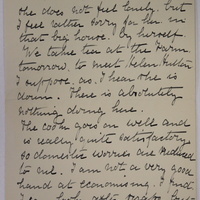 she does not feel lonely, but
I feel rather sorry for her in
that big house. by herself.
We take tea at the Farm.
tomorrow, to meet Helen
I suppose, as I hear she is
down. There is absolutely
nothing doing here.
The cook goes on well and
is really quite satisfactory
so domestic worries are reduced
to nil. I am not a very good
hand at economising. I find